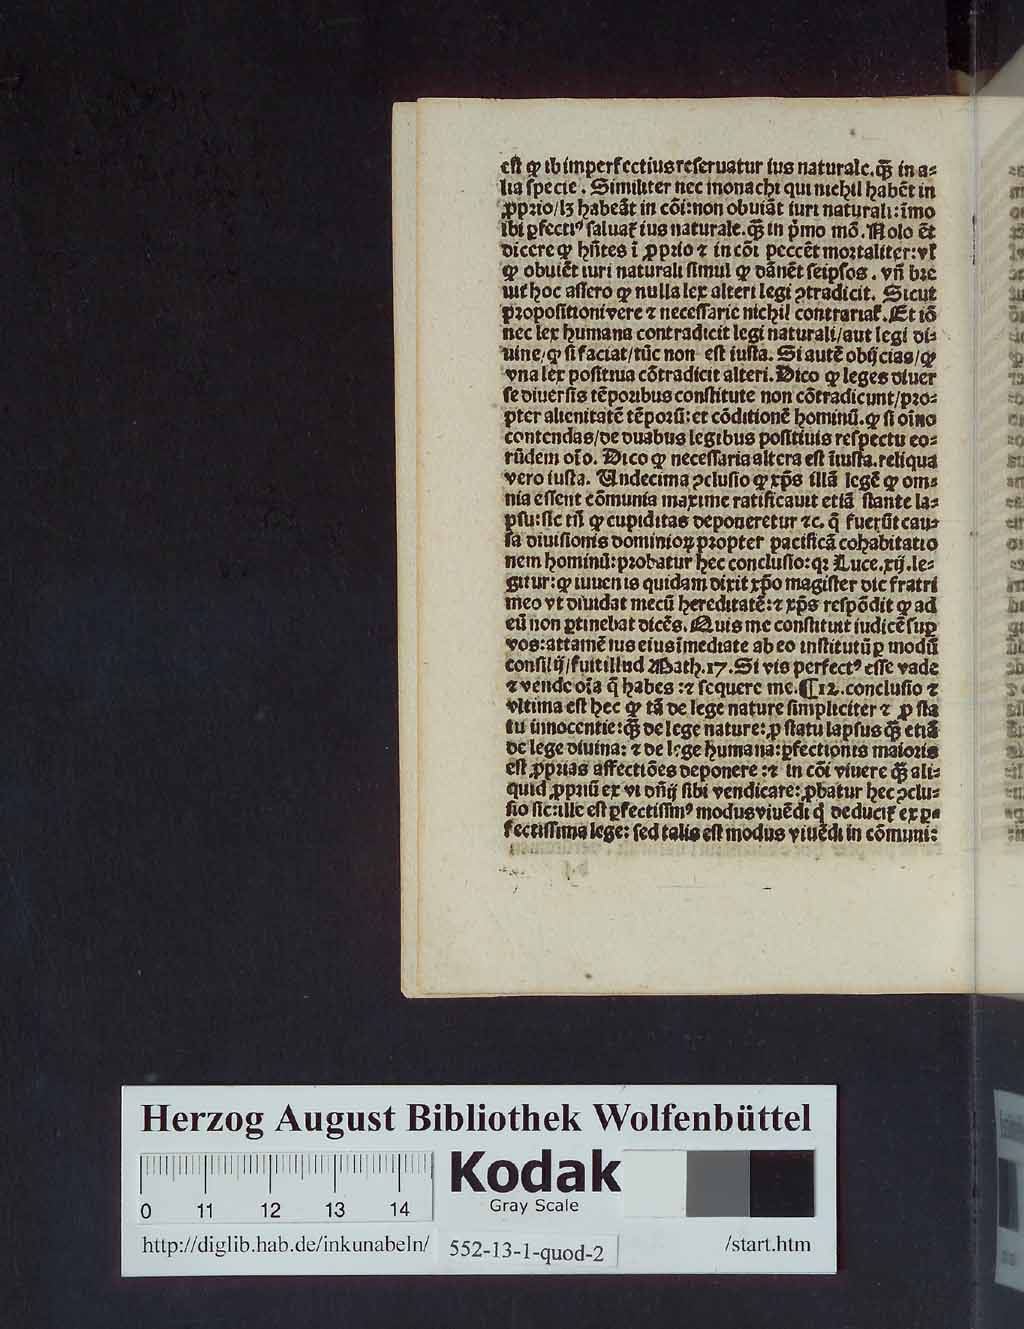 est ꝙ ibi imperfectius reseruatur ius naturale. q̃ȝ in a⸗
lia specie . Similiter nec monachi qui nichil habẽt in
ꝓprio/lȝ habeãt in cõi: non obuiãt iuri naturali: ĩmo
ibi ꝑfectiꝰ saluat᷑ ius naturale. q̃ȝ in p̃mo mõ. Nolo ẽt
dicere ꝙ hñtes ĩ ꝓprio ⁊ in cõi peccẽt mortaliter: vl̕
ꝙ obuiẽt iuri naturali simul ꝙ dãnẽt seipsos . vñ bre
uit̕ hoc assero ꝙ nulla lex alteri legi ꝯtradicit. Sicut
propositioni vere ⁊ necessarie nichil contrariat᷑. Et iõ
nec lex humana contradicit legi naturali/aut legi di⸗
uine/ꝙ si faciat/tũc non est iusta. Si autẽ obijcias/ꝙ
vna lex positiua cõtradicit alteri. Dico ꝙ leges diuer
se diuersis tẽporibus constitute non cõtradicunt/pro⸗
pter alienitatẽ tẽporũ: et cõditionẽ hominũ. ꝙ si oĩno
contendas/de duabus legibus positiuis respectu eo⸗
rũdem oĩo. Dico ꝙ necessaria altera est ĩiusta. reliqua
vero iusta. Undecima ꝯclusio ꝙ xp̃s illã legẽ ꝙ om⸗
nia essent cõmunia maxime ratificauit etiã stante la⸗
psu: sic tñ ꝙ cupiditas deponeretur ⁊c. q̃ fuerũt cau⸗
sa diuisionis dominioꝝ propter pacificã cohabitatio
nem hominũ: probatur hec conclusio: qꝛ Luce. xij. le⸗
gitur: ꝙ iuuenis quidam dixit xp̃o magister dic fratri
meo vt diuidat mecũ hereditatẽ: ⁊ xp̃s respõdit ꝙ ad
eũ non ꝑtinebat dicẽs. Quis me constituit iudicẽ suꝑ
vos: attamẽ ius eius ĩmediate ab eo institutũ ꝑ modũ
consilij/fuit illud Math. 17. Si vis perfectꝰ esse vade
⁊ vende oĩa q̃ habes : ⁊ sequere me. ¶ 12. conclusio ⁊
vltima est hec ꝙ tã de lege nature simpliciter ⁊ ꝓ sta
tu innocentie: q̃ȝ de lege nature: ꝓ statu lapsus q̃ȝ etiã
de lege diuina: ⁊ de lege humana: ꝑfectionis maioris
est ꝓprias affectiões deponere : ⁊ in cõi viuere q̃ȝ ali⸗
quid ꝓpriũ ex vi dñij sibi vendicare: ꝓbatur hec ꝯclu⸗
sio sic: ille est ꝑfectissimꝰ modus viuẽdi q̃ deducit᷑ ex ꝑ⸗
fectissima lege: sed talis est modus viuẽdi in cõmuni:
Herzog August Bibliothek Wolfenbüttel
0 11 12 13 14
Kodak
Gray Scale
http://diglib.hab.de/inkunabeln/ 552-13-1-quod-2 /start.htm